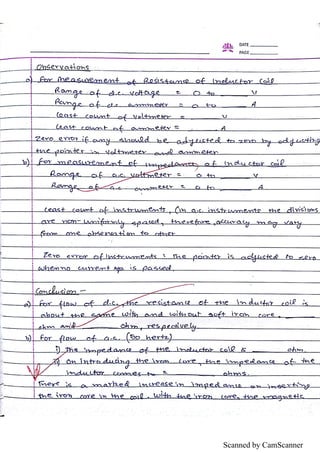 DATE
PAGE
Observations
a) For measurement of Resistance of inductor coil
Range of d.c. voltage = 0 to ___ V
Range of d.c ammeter = 0 to ___ A
Least count of voltmeter = ___ V
Least count of ammeter = ___ A
Zero error if any should be adjusted to zero by adjusting
the pointer in voltmeter and ammeter
b) For measurement of impedance of inductor coil
Range of a.c. voltmeter = 0 to ___ V
Range of a.c ammeter = 0 to ___ A
Least count of instruments, (in a.c. instruments the divisions
are non-uniformly spaced, therefore, accuracy may vary
from one observation to other
Zero error of instruments : The pointer is adjusted to zero
when no current is passed.
Conclusion -
a) For flow of d.c., the resistance of the inductor coil is
about the same with and without soft iron core.
ohm and ___ ohm, respectively
b) For flow of a.c. (50 hertz)
1) The impedance of the inductor coil is ___ ohm.
2) On introducing the iron core, the impedance of the
inductor comes to = ___ ohms.
There is a marked increase in impedance on inserting
the iron core in the coil. With the iron core, the magnetic
Scanned by CamScanner